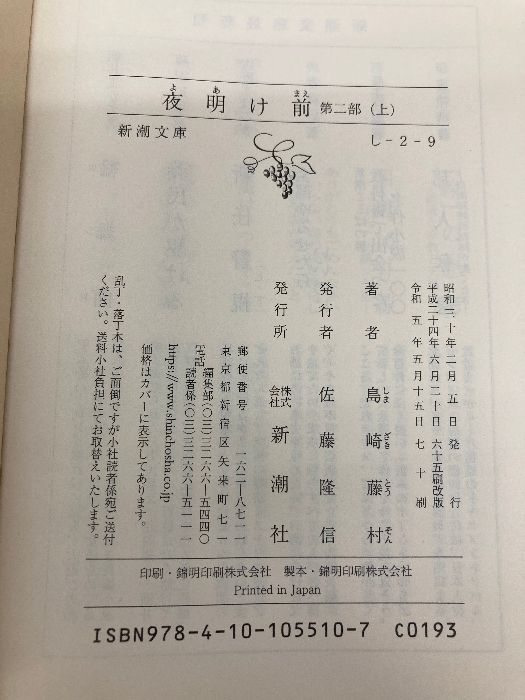 夜明け前 第二部(上)
新潮文庫
し-2-9
昭和三十年二月五日発行
平成二十四年六月二十日六十五刷改版
令和五年五月十五日七十刷
著者 島崎藤村
発行者 佐藤隆信
発行所 株式会社 新潮社
郵便番号 一六二―八七一一
東京都新宿区矢来町七一
電話 編集部(〇三)三二六六―五四四〇
読者係(〇三)三二六六―五一一一
https://www.shinchosha.co.jp
価格はカバーに表示してあります。
乱丁・落丁本は、ご面倒ですが小社読者係宛ご送付
ください。送料小社負担にてお取替えいたします。
印刷・錦明印刷株式会社 製本・錦明印刷株式会社
Printed in Japan
ISBN978-4-10-105510-7 C0193